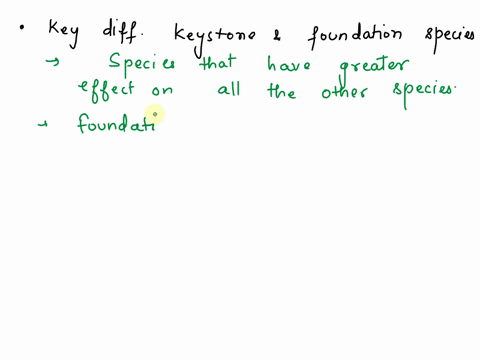 • Key diff. Keystone & foundation species
→ Species that have greater
effect on all the other species.
→ foundati